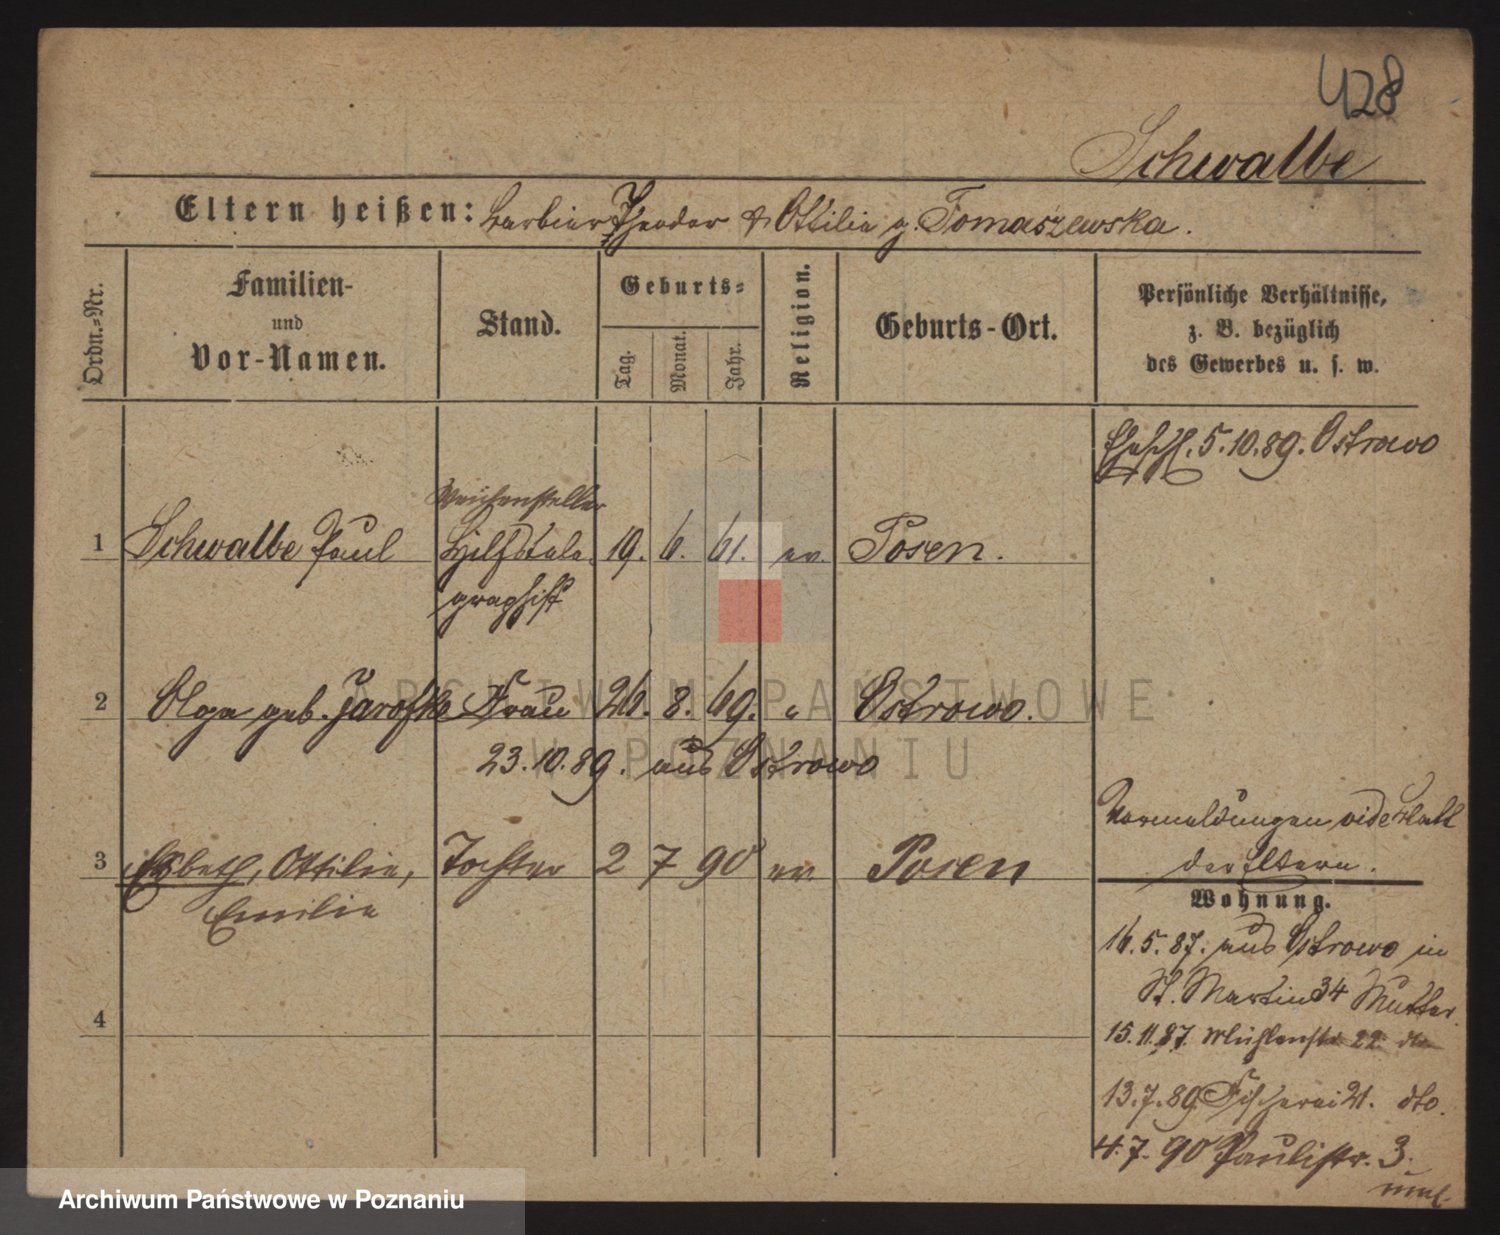 428
Schwalbe
Eltern heißen: Barbier Theodor & Ottilie g. Tomaszewska.
Ordn.-Nr.
Familien-
und
Vor-Namen.
Stand.
Geburts-
Tag.
Monat.
Jahr.
Religion.
Geburts-Ort.
Persönliche Verhältnisse,
z. B. bezüglich
des Gewerbes u. s. w.
Eheschl. 5.10.89. Ostrowo
Weichensteller
1 Schwalbe Paul Hilfstele- 19. 6. 61. ev. Posen.
graphist
2 Olga geb. Jarofke Frau 26. 8. 69. " Ostrowo.
23.10.89. aus Ostrowo
3 Elsbeth, Ottilie, Tochter 2 7 90 ev. Posen
Emilie
4
Vormeldungen vide Blatt
der Eltern.
Wohnung.
16.5.87. aus Ostrowo in
St. Martin 34 Mutter.
15.11.87. Mühlenstr. 22 dto
13.7.89 Fischerei 21. dto.
4.7.90 Paulistr. 3.
ARCHIWUM PAŃSTWOWE
W POZNANIU
Archiwum Państwowe w Poznaniu